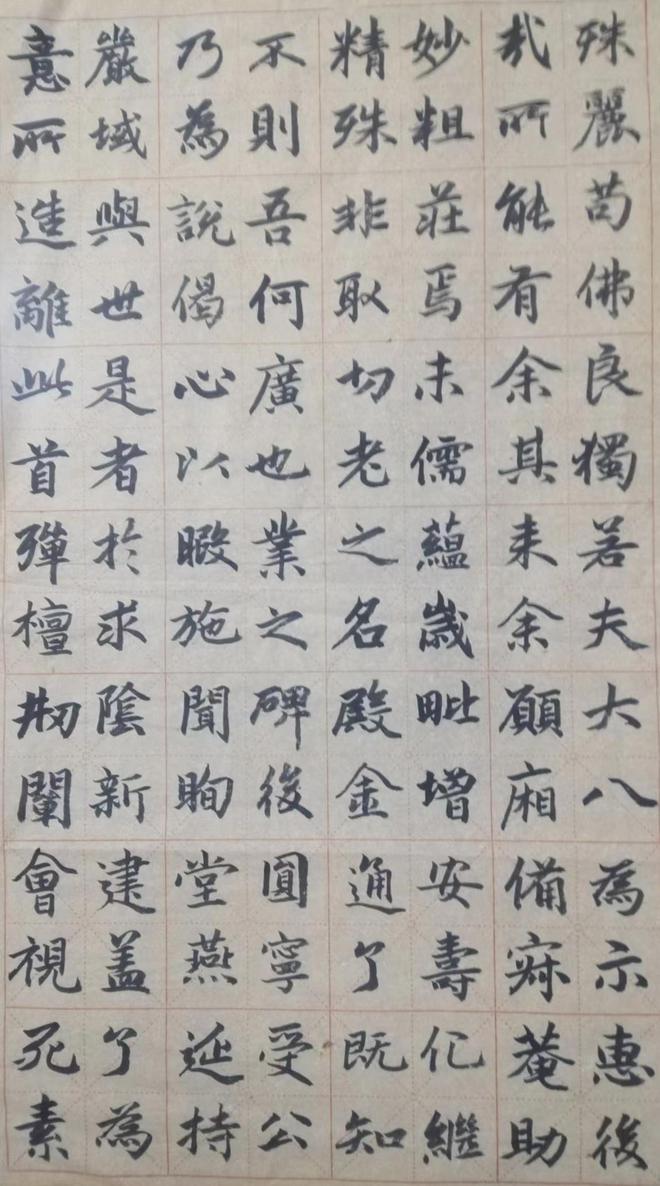 殊麗苟佛良獨若夫大八為示惠後
哉所能有余其未余願廂備寂菴助
妙粗莊焉未儒蘊歲毗增安壽化繼
精殊非取切老之名殿金通了既知
不則吾何廣也業之碑後圓寧受公
乃為說偈心以暇施聞昫堂燕延持
嚴域與世是者於求陰新建盖了為
意所造離此首彈檀牣闡會視死素